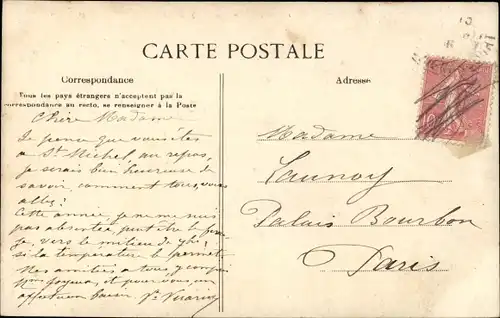 CARTE POSTALE
Correspondance
Tous les pays étrangers n'acceptent pas la
correspondance au recto, se renseigner à la Poste
Adresse
Chère Madame
Je pense que vous êtes
à St Michel, au repos,
je serais bien heureuse de
savoir comment tous vous
allez!
Cette année, je ne me suis
pas absentée, peut être le
vers le milieu de
si la température le permet
Nos amitiés à tous
et pour vous un
affectueux baiser
Madame
Launay
Palais Bourbon
Paris
10